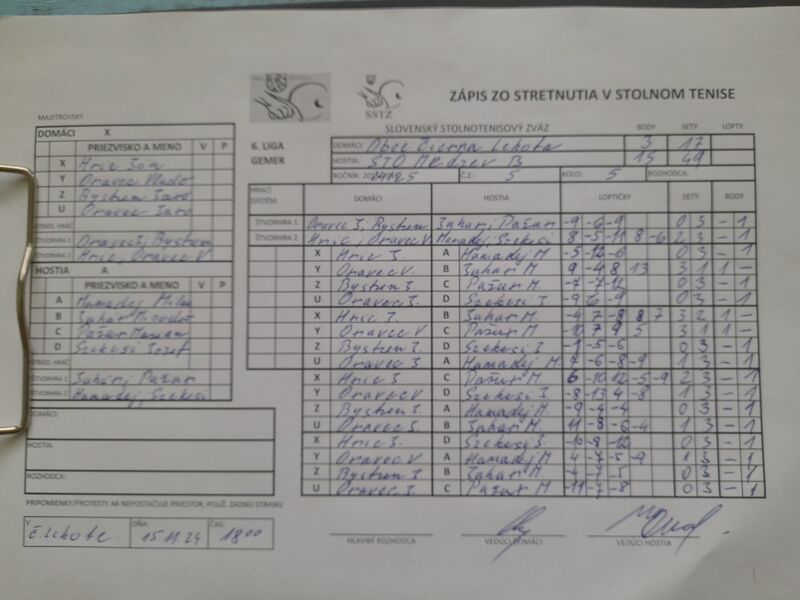 ZÁPIS ZO STRETNUTIA V STOLNOM TENISE
SSTZ
MAJSTROVSKÝ
DOMÁCI X
PRIEZVISKO A MENO V P
X Hric Ján
Y Oravec Vlado
Z Bystren Jaro
U Oravec Jaro
STRIED. HRÁČ
ŠTVORHRA 1 Oravec J, Bystren
ŠTVORHRA 2 Hric, Oravec V
HOSTIA A
PRIEZVISKO A MENO V P
A Hamadej Milan
B
C Pažur Marian
D Szekesi Jozef
STRIED. HRÁČ
ŠTVORHRA 1 Pažur
ŠTVORHRA 2 Hamadej, Szekesi
DOMÁCI:
HOSTIA:
ROZHODCA:
PRIPOMIENKY/PROTESTY AK NEPOSTAČUJE PRIESTOR, POUŽ. ZADNÚ STRANU
V Č. Lehote DŇA. 15.11.24 ČAS: 18 00
SLOVENSKÝ STOLNOTENISOVÝ ZVÄZ BODY SETY LOPTY
6. LIGA DOMÁCI: Obec Čierna Lehota 3 17
GEMER HOSTIA: STO Medzev B 15 49
ROČNÍK: Č.Z.: 5 KOLO: 5 ROZHODCA:
HRACÍ SYSTÉM DOMÁCI HOSTIA LOPTIČKY SETY BODY
ŠTVORHRA 1 Oravec J, Bystren Pažur -9 -6 -9 0 3 - 1
ŠTVORHRA 2 Hric, Oravec V Hamadej, Szekesi 8 -5 -11 8 -6 2 3 - 1
X Hric J. A Hamadej M -5 -12 -6 0 3 - 1
Y Oravec V. B M. 9 -4 8 13 3 1 1 -
Z Bystren J C Pažur M -7 -7 -12 0 3 - 1
U Oravec J. D Szekesi J. -9 -6 -9 0 3 - 1
X Hric J. B M. -4 7 -8 8 7 3 2 1 -
Y Oravec V C Pažur M. -10 7 9 5 3 1 1 -
Z Bystren J. D Szekesi J -1 -5 -6 0 3 - 1
U Oravec J A Hamadej M. 7 -6 -8 -9 1 3 - 1
X Hric J. C Pažur M. 6 -10 12 -5 -9 2 3 - 1
Y Oravec V D Szekesi J. -8 -13 4 -8 1 3 - 1
Z Bystren J. A Hamadej M. -9 -4 -4 0 3 - 1
U Oravec J. B M. 11 -8 -6 -4 1 3 - 1
X Hric J. D Szekesi J. -10 -8 -12 0 3 - 1
Y Oravec V A Hamadej M 4 -7 -5 -9 1 3 - 1
Z Bystren J. B M. -4 -7 -5 0 3 - 1
U Oravec J. C Pažur M -11 -7 -8 0 3 - 1
HLAVNÝ ROZHODCA VEDÚCI DOMÁCI VEDÚCI HOSTIA